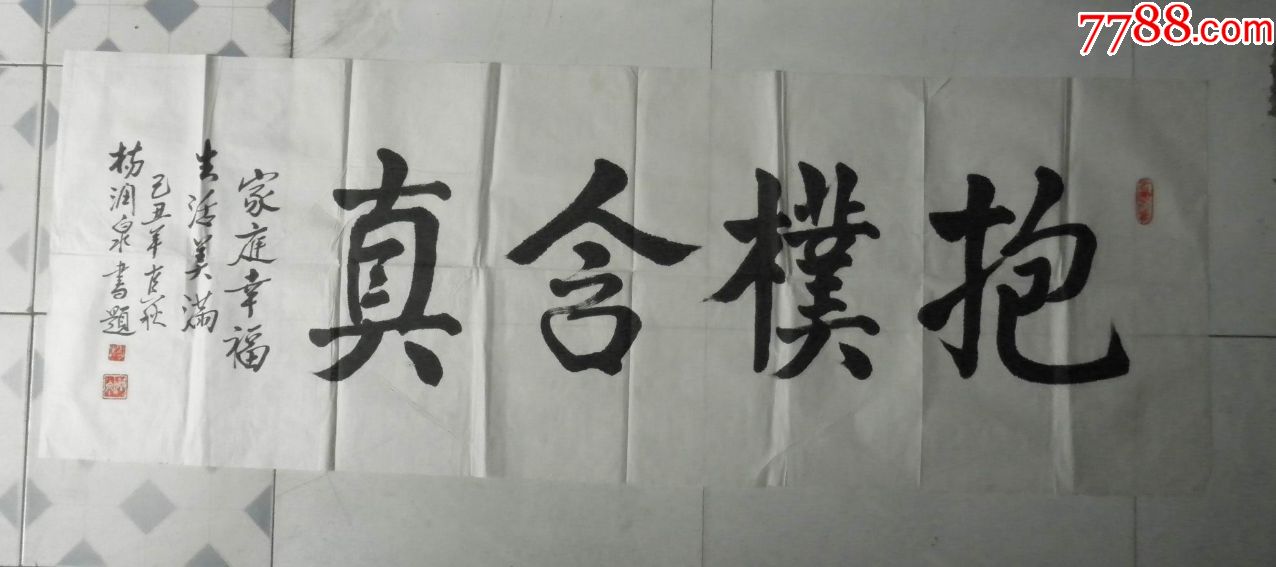 7788.com
抱樸含真
家庭幸福
生活美滿
己丑年
楊润泉書題